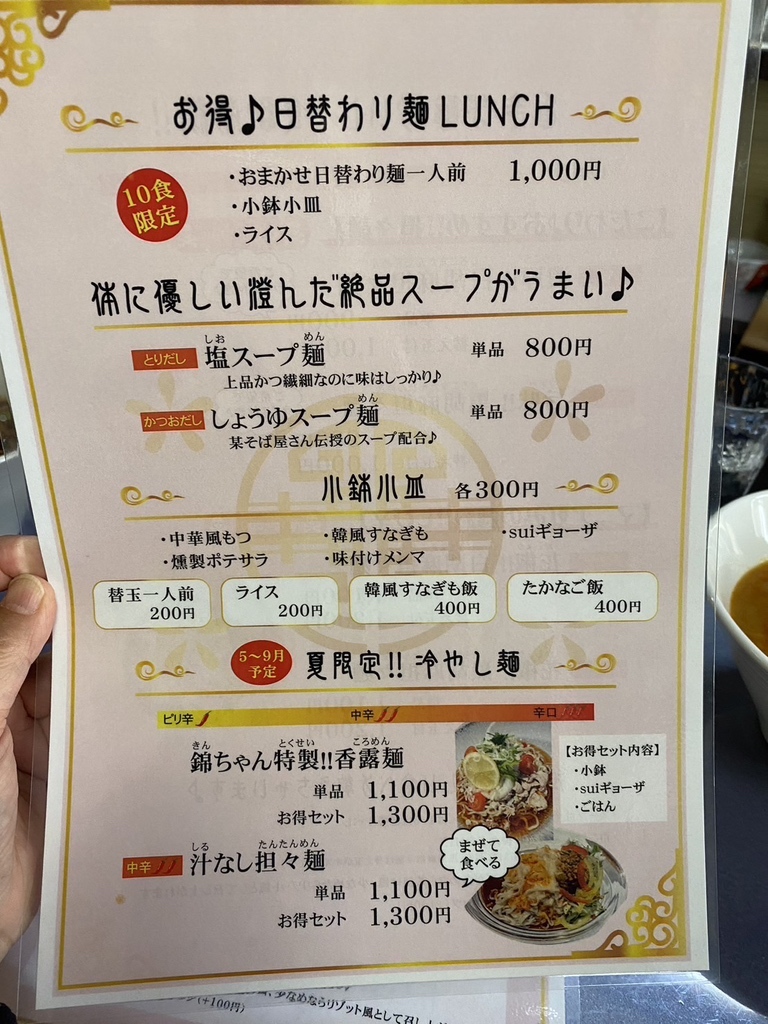 お得♪日替わり麺LUNCH
10食
限定
・おまかせ日替わり麺一人前 1,000円
・小鉢小皿
・ライス
体に優しい澄んだ絶品スープがうまい♪
しお めん
とりだし 塩スープ麺 単品 800円
上品かつ繊細なのに味はしっかり♪
めん
かつおだし しょうゆスープ麺 単品 800円
某そば屋さん伝授のスープ配合♪
小鉢小皿 各300円
・中華風もつ ・韓風すなぎも ・suiギョーザ
・燻製ポテサラ ・味付けメンマ
替玉一人前 ライス 韓風すなぎも飯 たかなご飯
200円 200円 400円 400円
5〜9月
予定
夏限定!! 冷やし麺
ピリ辛 中辛 辛口
きん とくせい ころめん
錦ちゃん特製!!香露麺
単品 1,100円
お得セット 1,300円
【お得セット内容】
・小鉢
・suiギョーザ
・ごはん
しる たんたんめん
中辛 汁なし担々麺
まぜて
食べる
単品 1,100円
お得セット 1,300円
(+100円)
少なめならリゾット風として召し